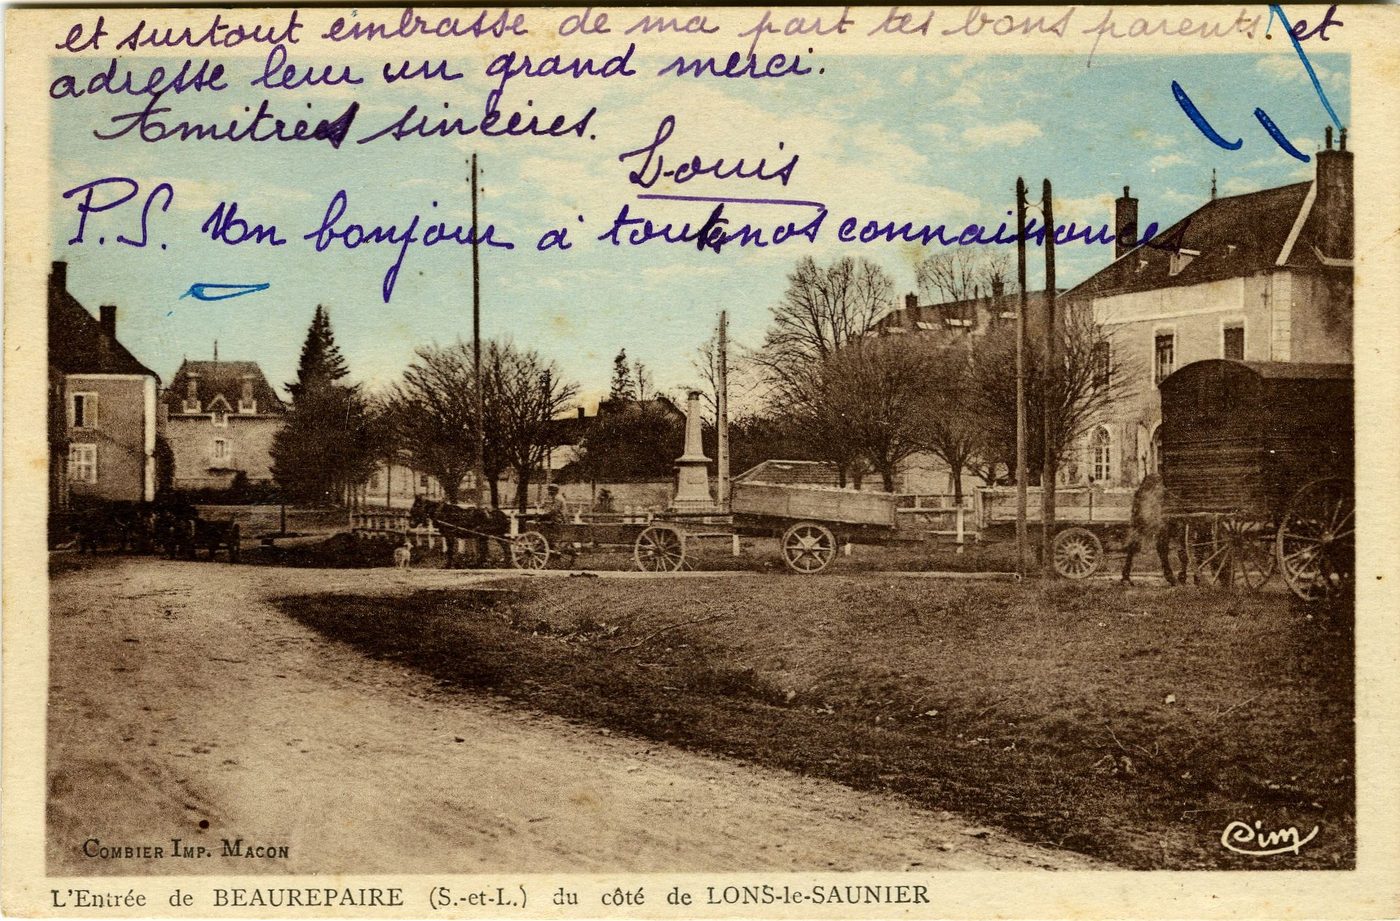 et surtout embrasse de ma part tes bons parents! et
adresse leur un grand merci.
Amitiés sincères.
Louis
P.S. Un bonjour à toutes nos connaissances
COMBIER IMP. MACON
Cim
L'Entrée de BEAUREPAIRE (S.-et-L.) du côté de LONS-le-SAUNIER